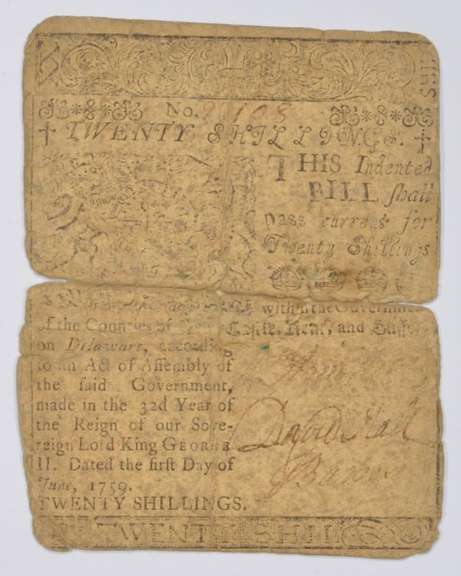 No. 
TWENTY SHILLINGS.
THIS Indented
BILL shall
pass current for
Twenty Shillings
within the Government
of the Counties of New-Castle, Kent, and Sussex
on Delaware, according
to an Act of Assembly of
the said Government,
made in the 32d Year of
the Reign of our Sove-
reign Lord King GEORGE
II. Dated the first Day of
June, 1759.
TWENTY SHILLINGS.
David Hall
TWENTY SHIL